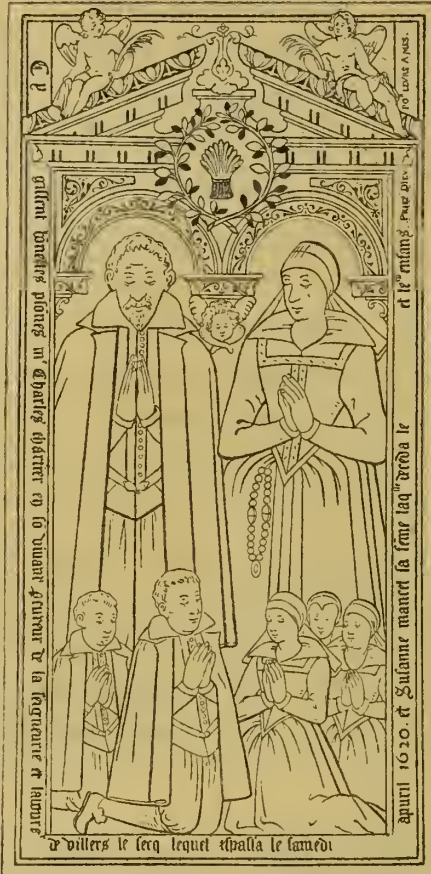 Cy
gissent honestes psones mᵉ Charles en so vivant de la seigneurie et
de villers le secq lequel le samedi
apuril 1620. et Susanne mancel sa feme laqˡˡᵉ deceda le
et leʳˢ enfans. PRIEZ DIEV
POʳ LEVRS AMES.